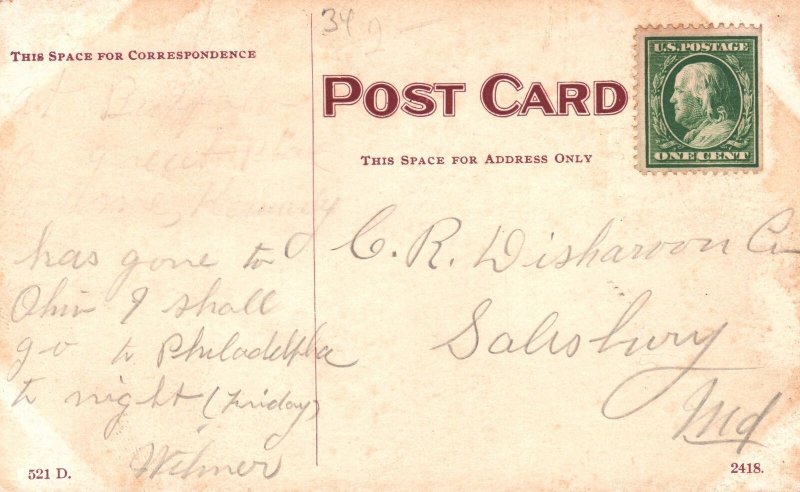 34
THIS SPACE FOR CORRESPONDENCE
U.S. POSTAGE
ONE CENT
POST CARD
THIS SPACE FOR ADDRESS ONLY
has gone to
Ohio I shall
go to Philadelphia
to night (Friday)
Wilmer
C. R. Disharoon Co
Salisbury
Md
521 D.
2418.